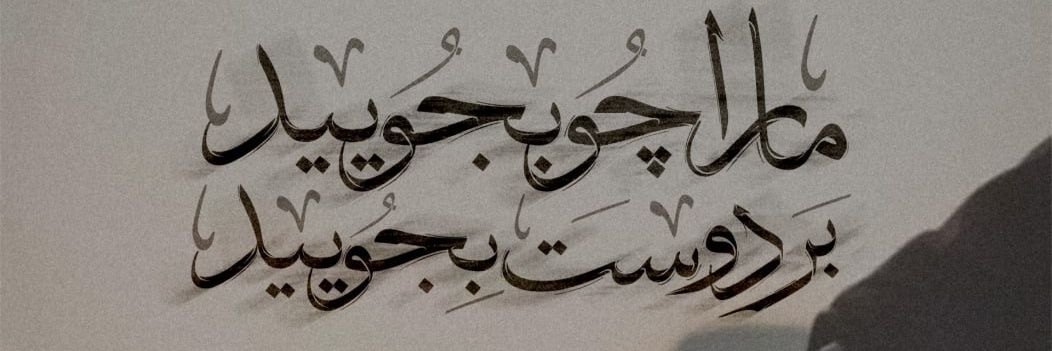 ما را چو بجویید
بَرِ دوست بِجویید